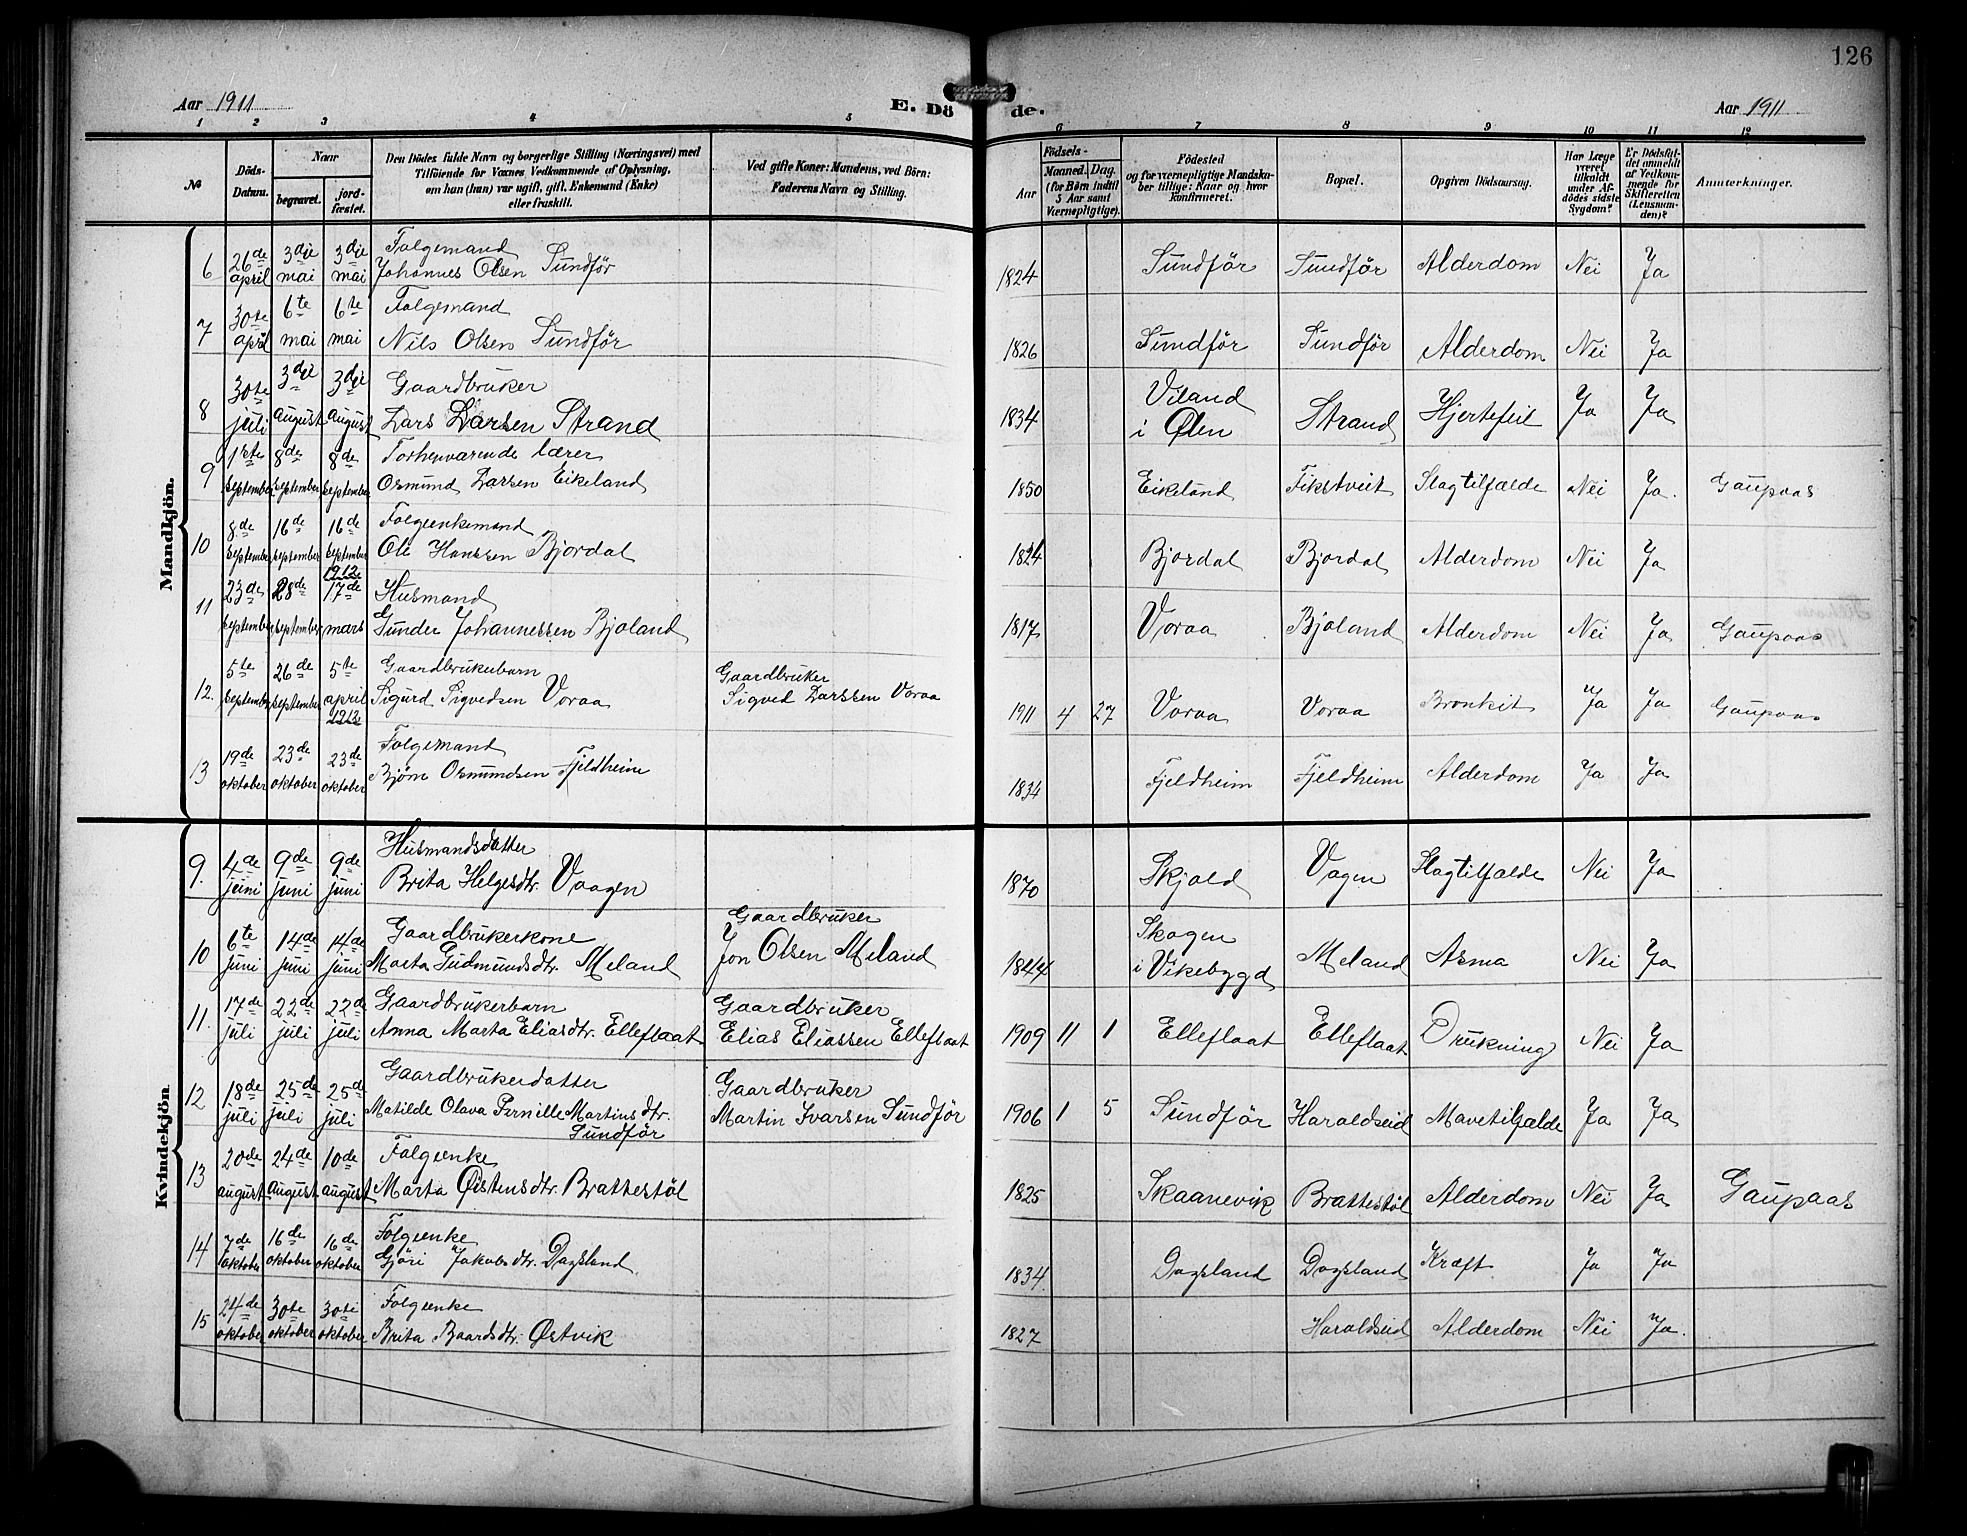 126
Aar 1911
E. Dö de.
Aar 1911
1 2 3 4 5 6 7 8 9 10 11 12
No
Döds-Datum.
Naar
begravet.
jord-fæstet.
Den Dödes fulde Navn og borgerlige Stilling (Næringsvei) med
Tilföiende for Voxnes Vedkommende af Oplysning,
om han (hun) var ugift, gift, Enkemand (Enke)
eller fraskilt.
Ved gifte Koner: Mandens, ved Börn:
Faderens Navn og Stilling.
Födsels-
Aar
Maaned. Dag.
(for Börn indtil
5 Aar samt
Værnepligtige).
Födested
og for værnepligtige Mandska-
ber tillige: Naar og hvor
konfirmeret.
Bopæl.
Opgiven Dödsaarsag.
Har Læge
været
tilkaldt
under Af-
dödes sidste
Sygdom?
Er Dödsfal-
det anmeldt
af Vedkom-
mende for
Skifteretten
(Lensman-
den)?
Anmerkninger.
Mandkjön.
6 26de april 3dje mai 3dje mai Folgemand
Johannes Olsen Sundför 1824 Sundför Sundför Alderdom Nei Ja
7 30te april 6te mai 6te mai Folgemand
Nils Olsen Sundför 1826 Sundför Sundför Alderdom Nei Ja
8 30te juli 3dje august 3dje august Gaardbruker
Lars Larsen Strand 1834 Viland
i Ølen Strand Hjertefeil Ja Ja
9 1ste september 8de september 8de september Forhenværende lærer
Osmund Larsen Eikeland 1850 Eikeland Fikstveit Slagtilfælde Nei Ja. Gaupaas
10 8de september 16de september 16de september Folgeenkemand
Ole Hanssen Bjordal 1824 Bjordal Bjordal Alderdom Nei Ja
11 23de september 28de september 1912 17de mars Husmand
Gunder Johannessen Bjoland 1817 Voraa Bjoland Alderdom Nei Ja Gaupaas
12. 5te september 26de september 5te april 1912 Gaardbrukerbarn
Sigurd Sigvedsen Voraa Gaardbruker
Sigved Larssen Voraa 1911 4 27 Voraa Voraa Bronkit Ja Ja Gaupaas
13 19de oktober 23de oktober 23de oktober Folgemand
Bjørn Osmundsen Fjeldheim 1834 Fjeldheim Fjeldheim Alderdom Ja Ja
Kvindekjön
9. 4de juni 9de juni 9de juni Husmandsdatter
Brita Helgesdtr. Vaagen 1870 Skjold Vagen Slagtilfælde Nei Ja
10 6te juni 14de juni 14de juni Gaardbrukerkone
Marta Gudmundsdtr. Meland Gaardbruker
Jon Olsen Meland 1844 Skogen
i Vikebygd Meland Asma Nei Ja
11. 17de juli 22de juli 22de juli Gaardbrukerbarn
Anna Marta Eliasdtr. Elleflaat Gaardbruker
Elias Eliassen Elleflaat 1909 11 1 Elleflaat Elleflaat Drukning Nei Ja
12 18de juli 25de juli 25de juli Gaardbrukerdatter
Matilde Olava Pernille Martinsdtr.
Sundför Gaardbruker
Martin Ivarsen Sundför 1906 1 5 Sundför Haraldseid Mavetilfælde Ja Ja
13 20de august 24de august 10de august Folgeenke
Marta Øistensdtr. Brattestöl 1825 Skaanevik Brattestöl Alderdom Nei Ja Gaupaas
14 7de oktober 16de oktober 16de oktober Folgeenke
Gjöri Jakobsdtr. Dagsland 1834 Dagsland Dagsland Kræft Ja Ja
15 24de oktober 30te oktober 30te oktober Folgeenke
Brita Baardsdtr. Østvik 1827 Haraldseid Alderdom Nei Ja.